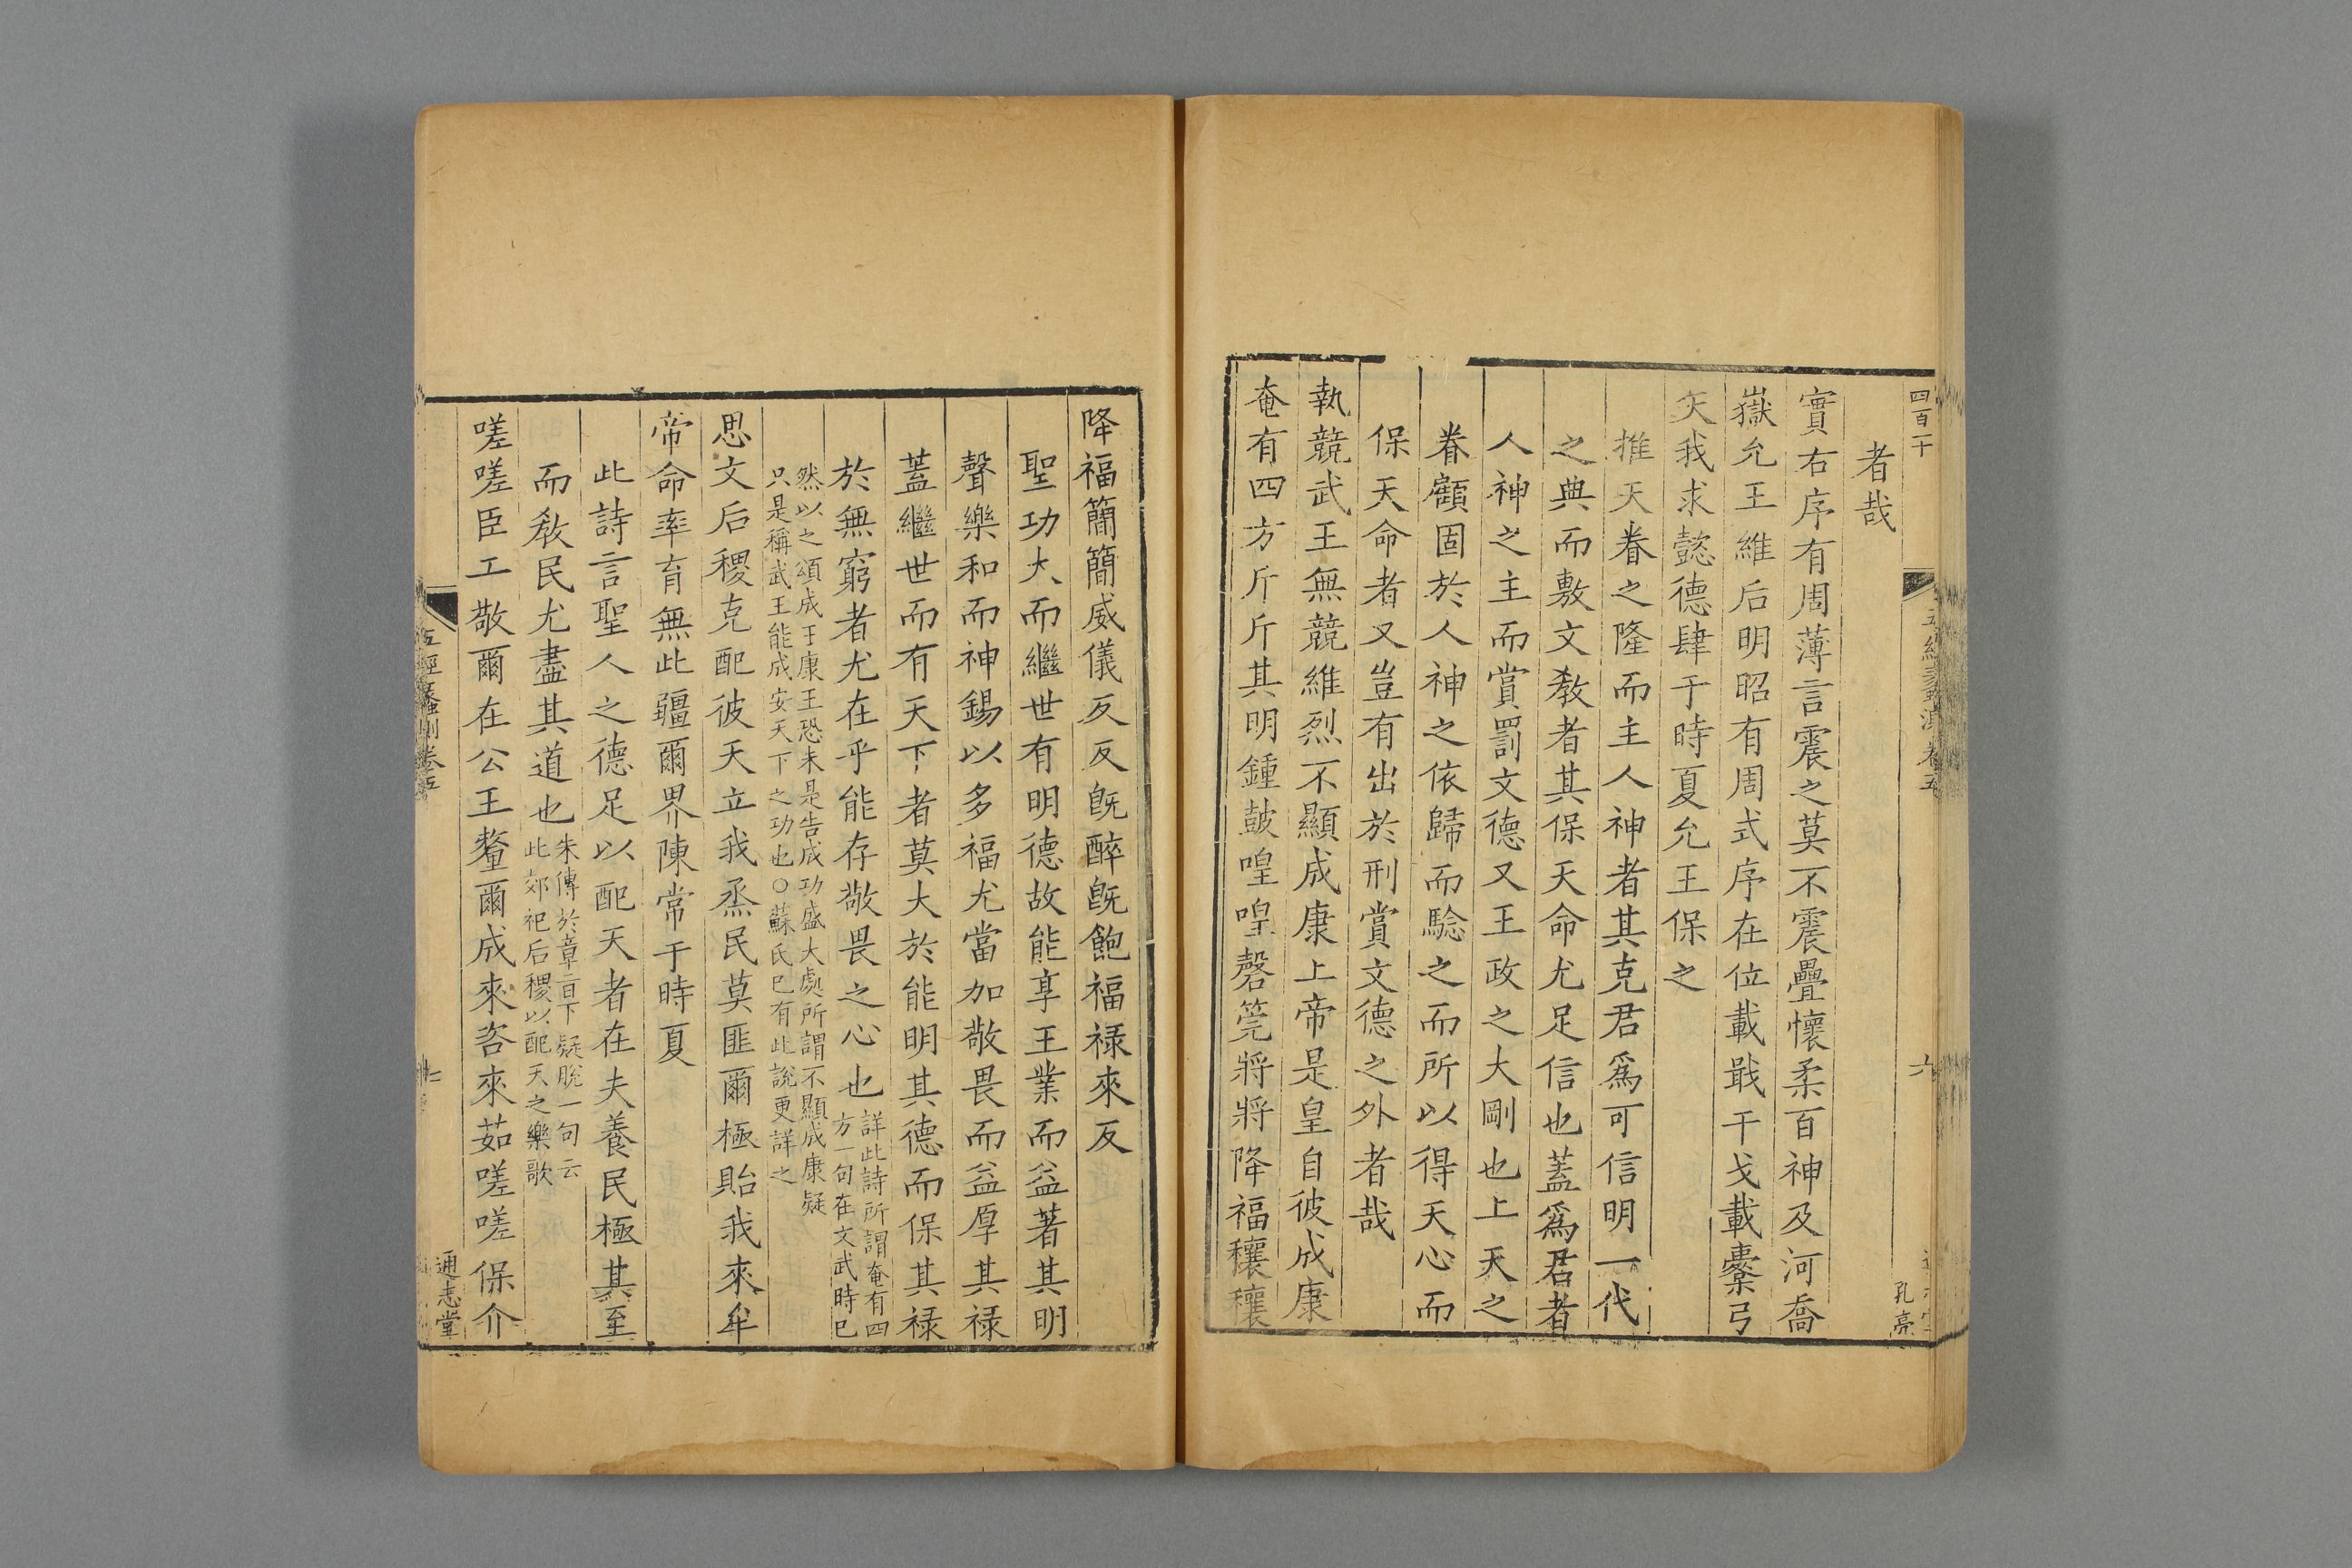 四百二十
六
孔亮
者哉
實右序有周薄言震之莫不震疊懷柔百神及河喬
嶽允王維后明昭有周式序在位載戢干戈載櫜弓
矢我求懿德肆于時夏允王保之
推天眷之隆而主人神者其克君爲可信明一代
之典而敷文敎者其保天命尤足信也蓋爲君者
人神之主而賞罰文德又王政之大剛也上天之
眷顧固於人神之依歸而驗之而所以得天心而
保天命者又豈有出於刑賞文德之外者哉
執競武王無競維烈不顯成康上帝是皇自彼成康
奄有四方斤斤其明鍾鼓喤喤磬筦將將降福穰穰
降福簡簡威儀反反旣醉旣飽福祿來反
聖功大而繼世有明德故能享王業而益著其明
聲樂和而神錫以多福尤當加敬畏而益厚其祿
蓋繼世而有天下者莫大於能明其德而保其祿
於無窮者尤在乎能存敬畏之心也詳此詩所謂奄有四
方一句在文武時已
然以之頌成王康王恐未是告成功盛大處所謂不顯成康疑
只是稱武王能成安天下之功也○蘇氏已有此說更詳之
思文后稷克配彼天立我烝民莫匪爾極貽我來牟
帝命率育無此疆爾界陳常于時夏
此詩言聖人之德足以配天者在夫養民極其至
而敎民尤盡其道也朱傳於章㫖下疑脫一句云
此郊祀后稷以配天之樂歌
嗟嗟臣工敬爾在公王釐爾成來咨來茹嗟嗟保介
五經蠡測卷五
通志堂